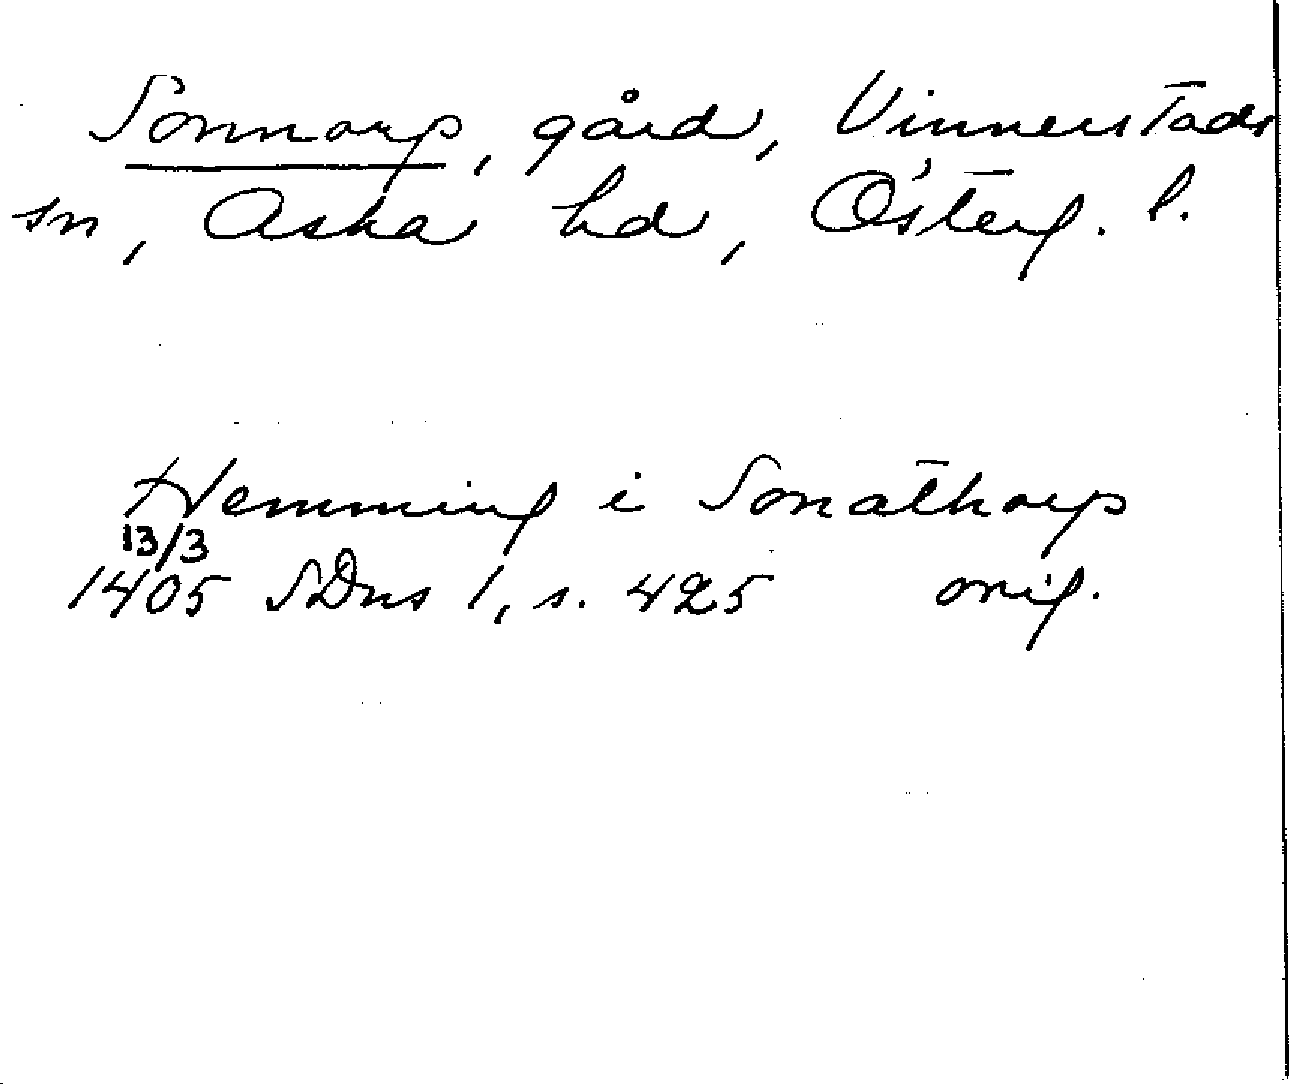 Sonnorp, gård, Vinnerstads
sn, Aska hd, Österg. l.
Hemming i Sonathorp
13/3
1405 SDns 1, s. 425 orig.